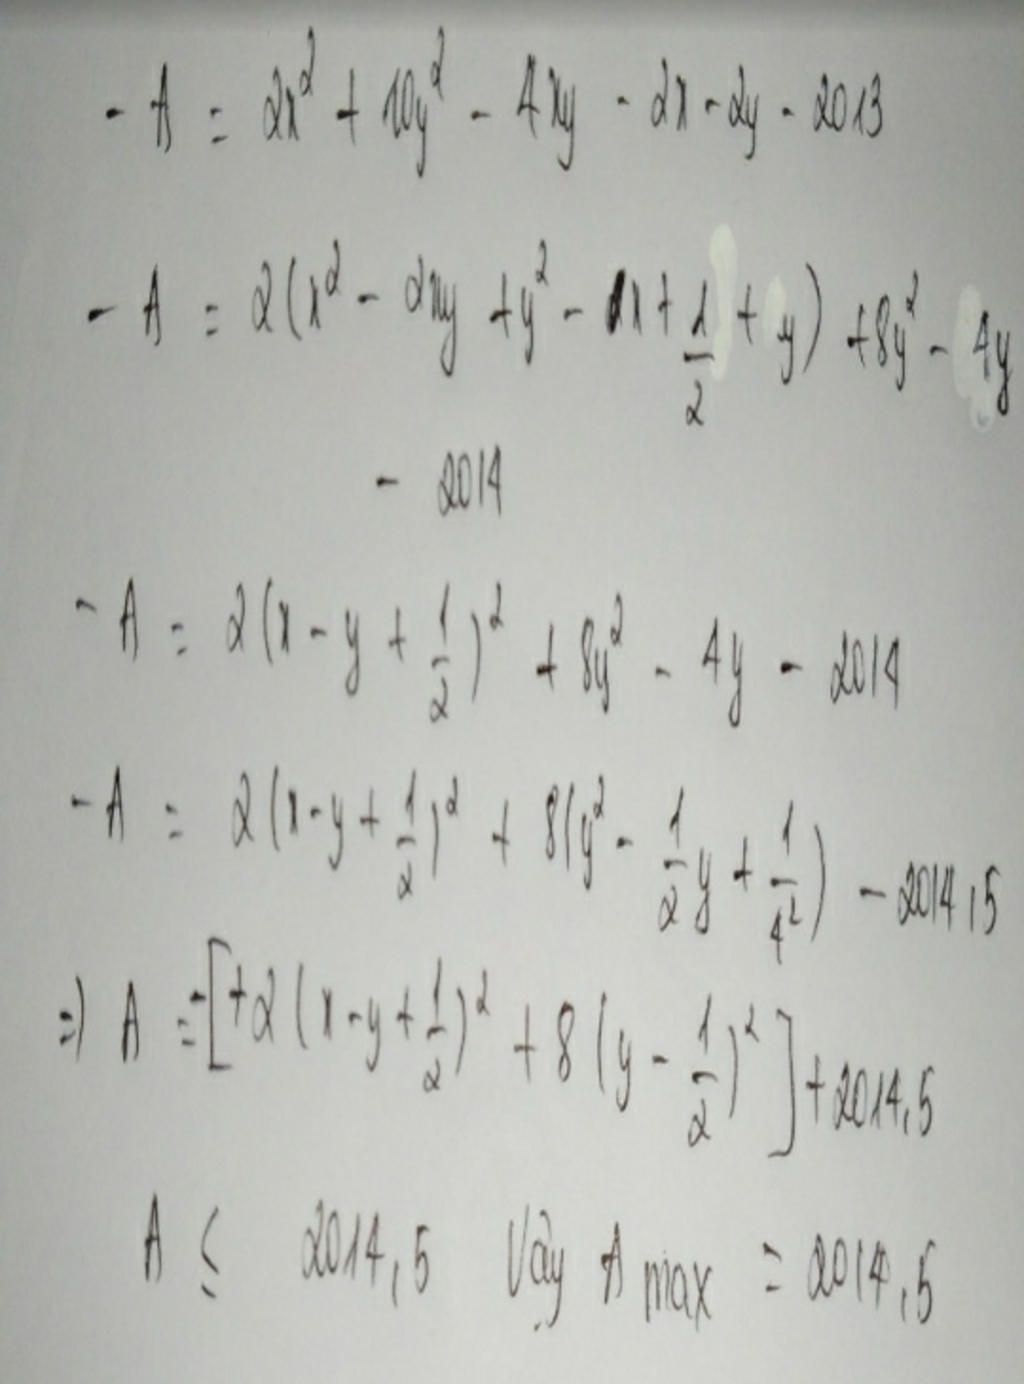 - A = 2x² + 10y² - 4xy - 2x - 2y - 2013
- A = 2(x² - 2xy + y² - x + 1/2 + y) + 8y² - 4y
- 2014
- A = 2(x - y + 1/2)² + 8y² - 4y - 2014
- A = 2(x - y + 1/2)² + 8(y² - 1/2y + 1/4²) - 2014,5
=) A = -[+2(x - y + 1/2)² + 8(y - 1/2)²] + 2014,5
A ≤ 2014,5 Vậy A max = 2014,5